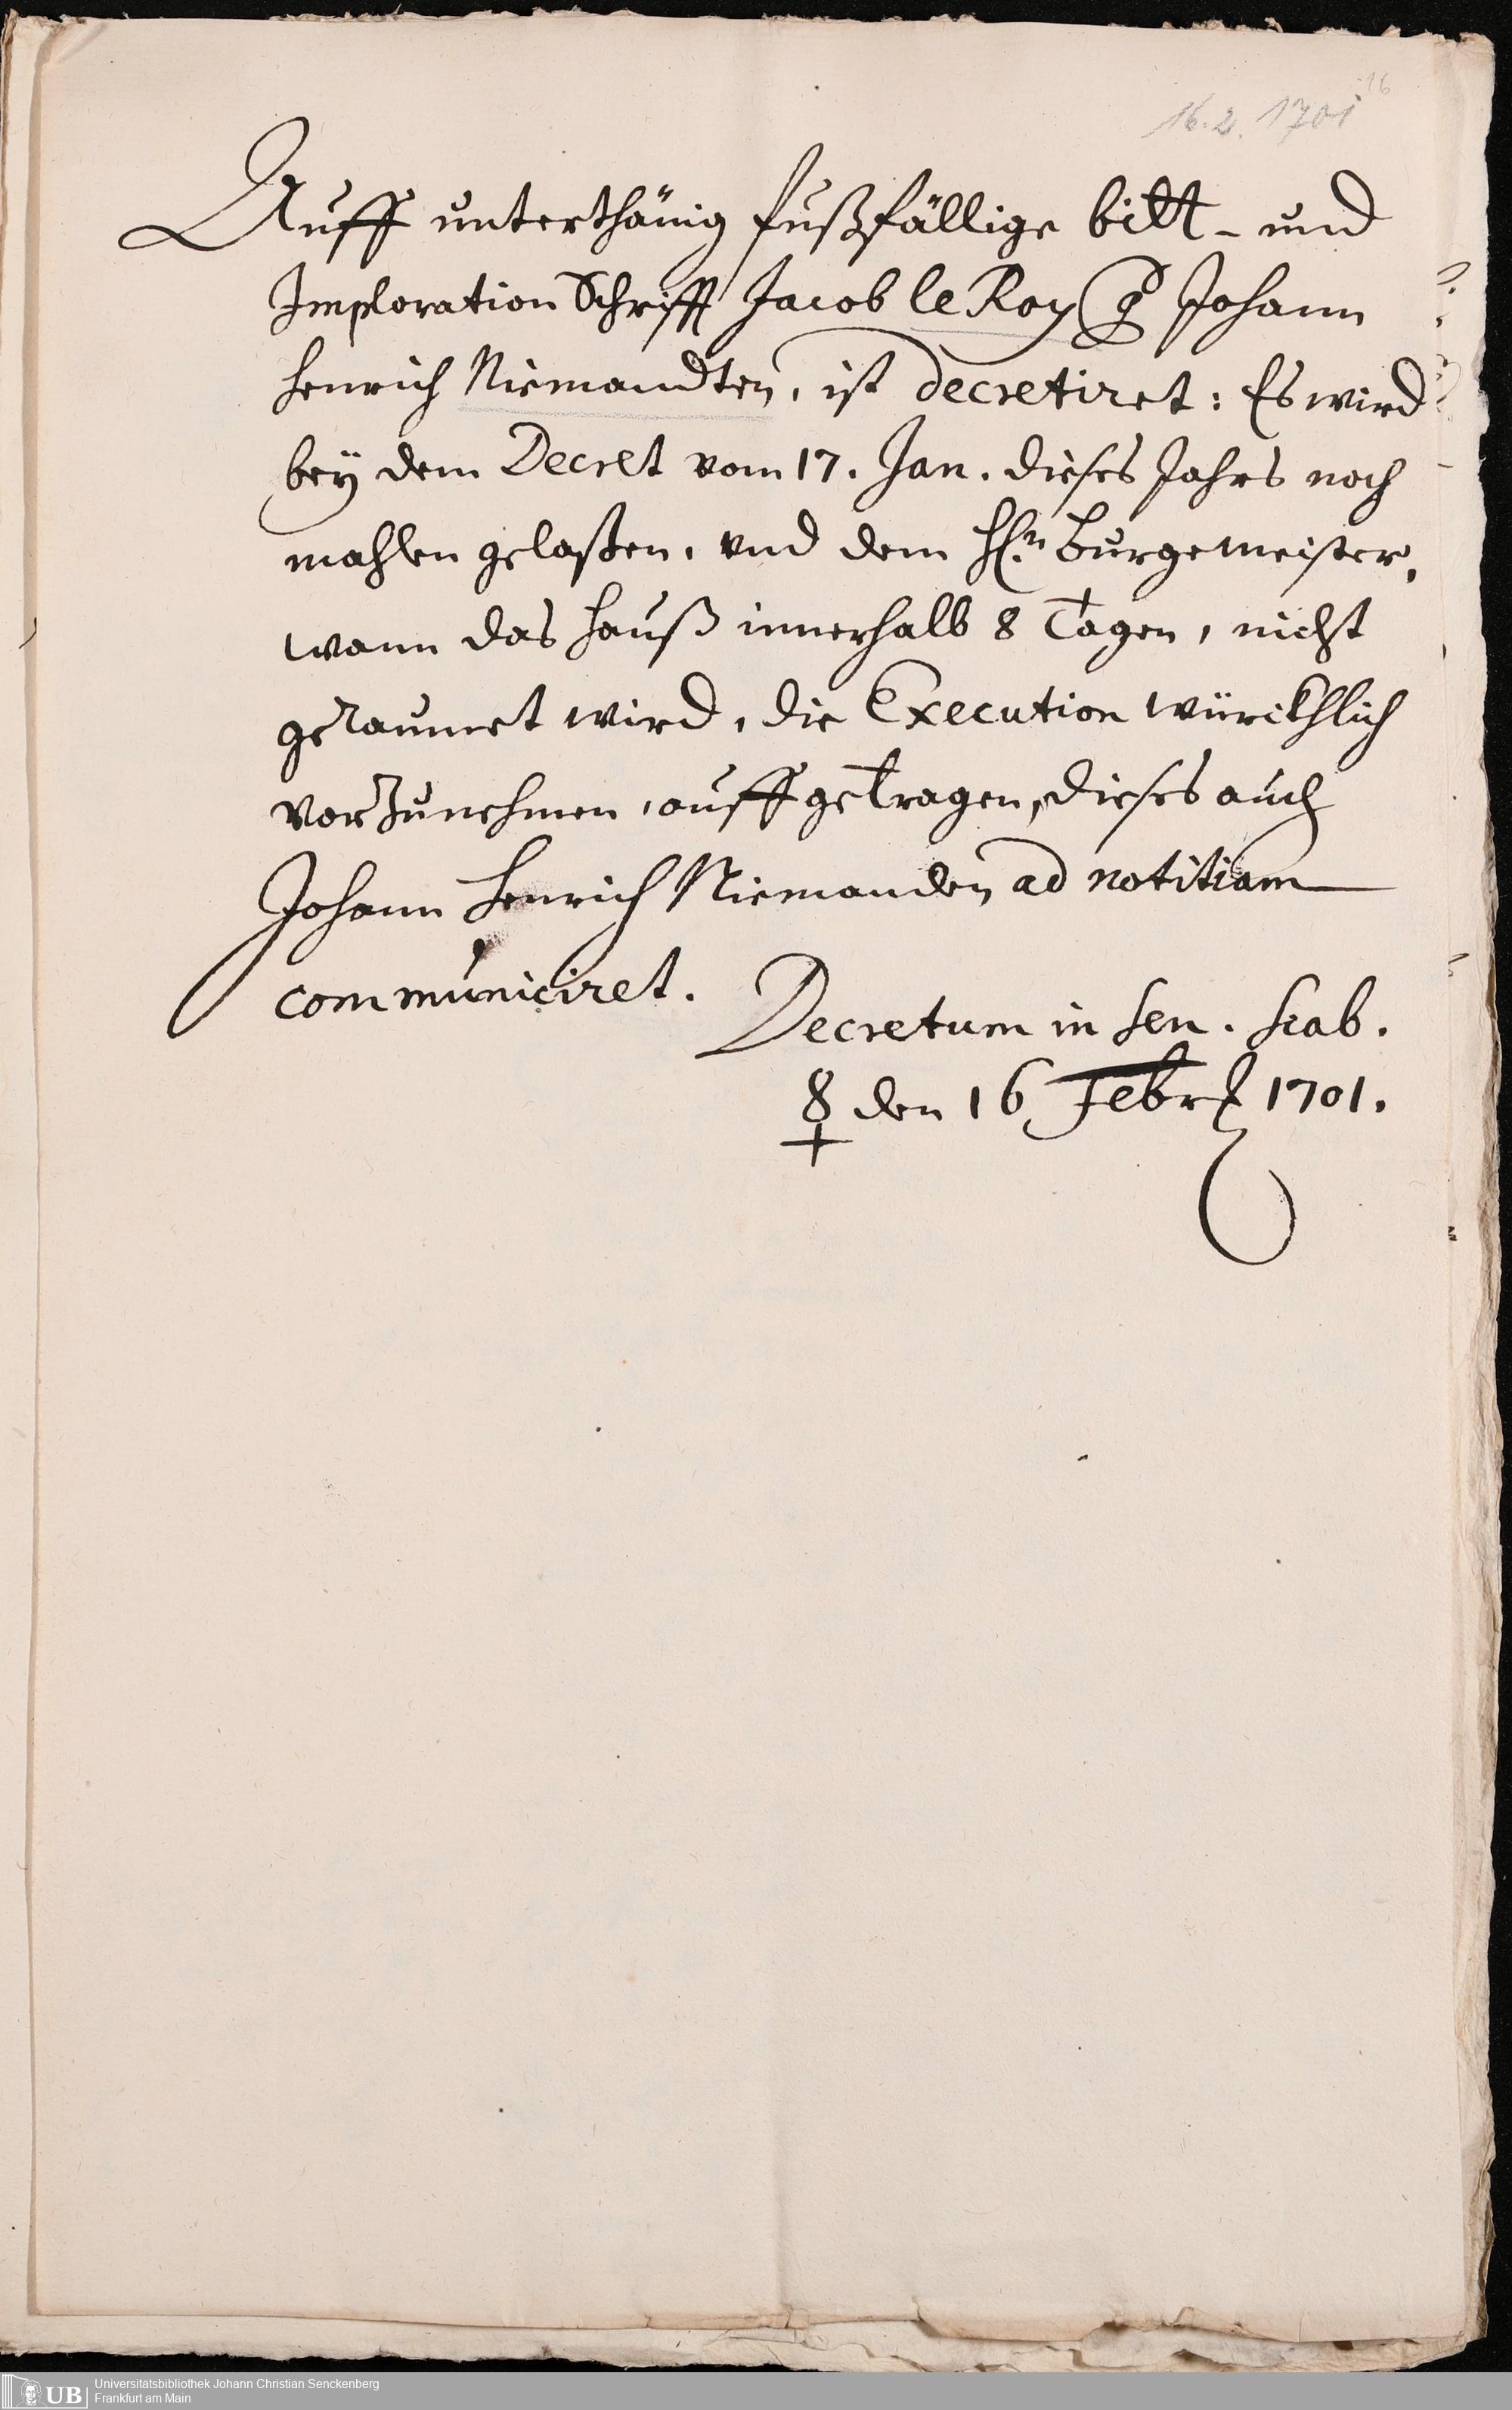 16
16. 2. 1701
Auff unterthänig fußfällige bitt- und
Imploration Schrifft Jacob le Roy Johann
Henrich Niemandten, ist decretiret: Es wird
bey dem Decret vom 17. Jan. dieses Jahrs noch
mahlen gelaßen, und dem Hn. Burgemeister,
wann das Hauß innerhalb 8 Tagen, nicht
geraumet wird, die Execution würcklich
vorzunehmen, auffgetragen, dieses auch
Johann Henrich Niemanden ad notitiam
communiciret.
Decretum in Sen. Scab.
☿ den 16 Febr. 1701.
UB
Universitätsbibliothek Johann Christian Senckenberg
Frankfurt am Main